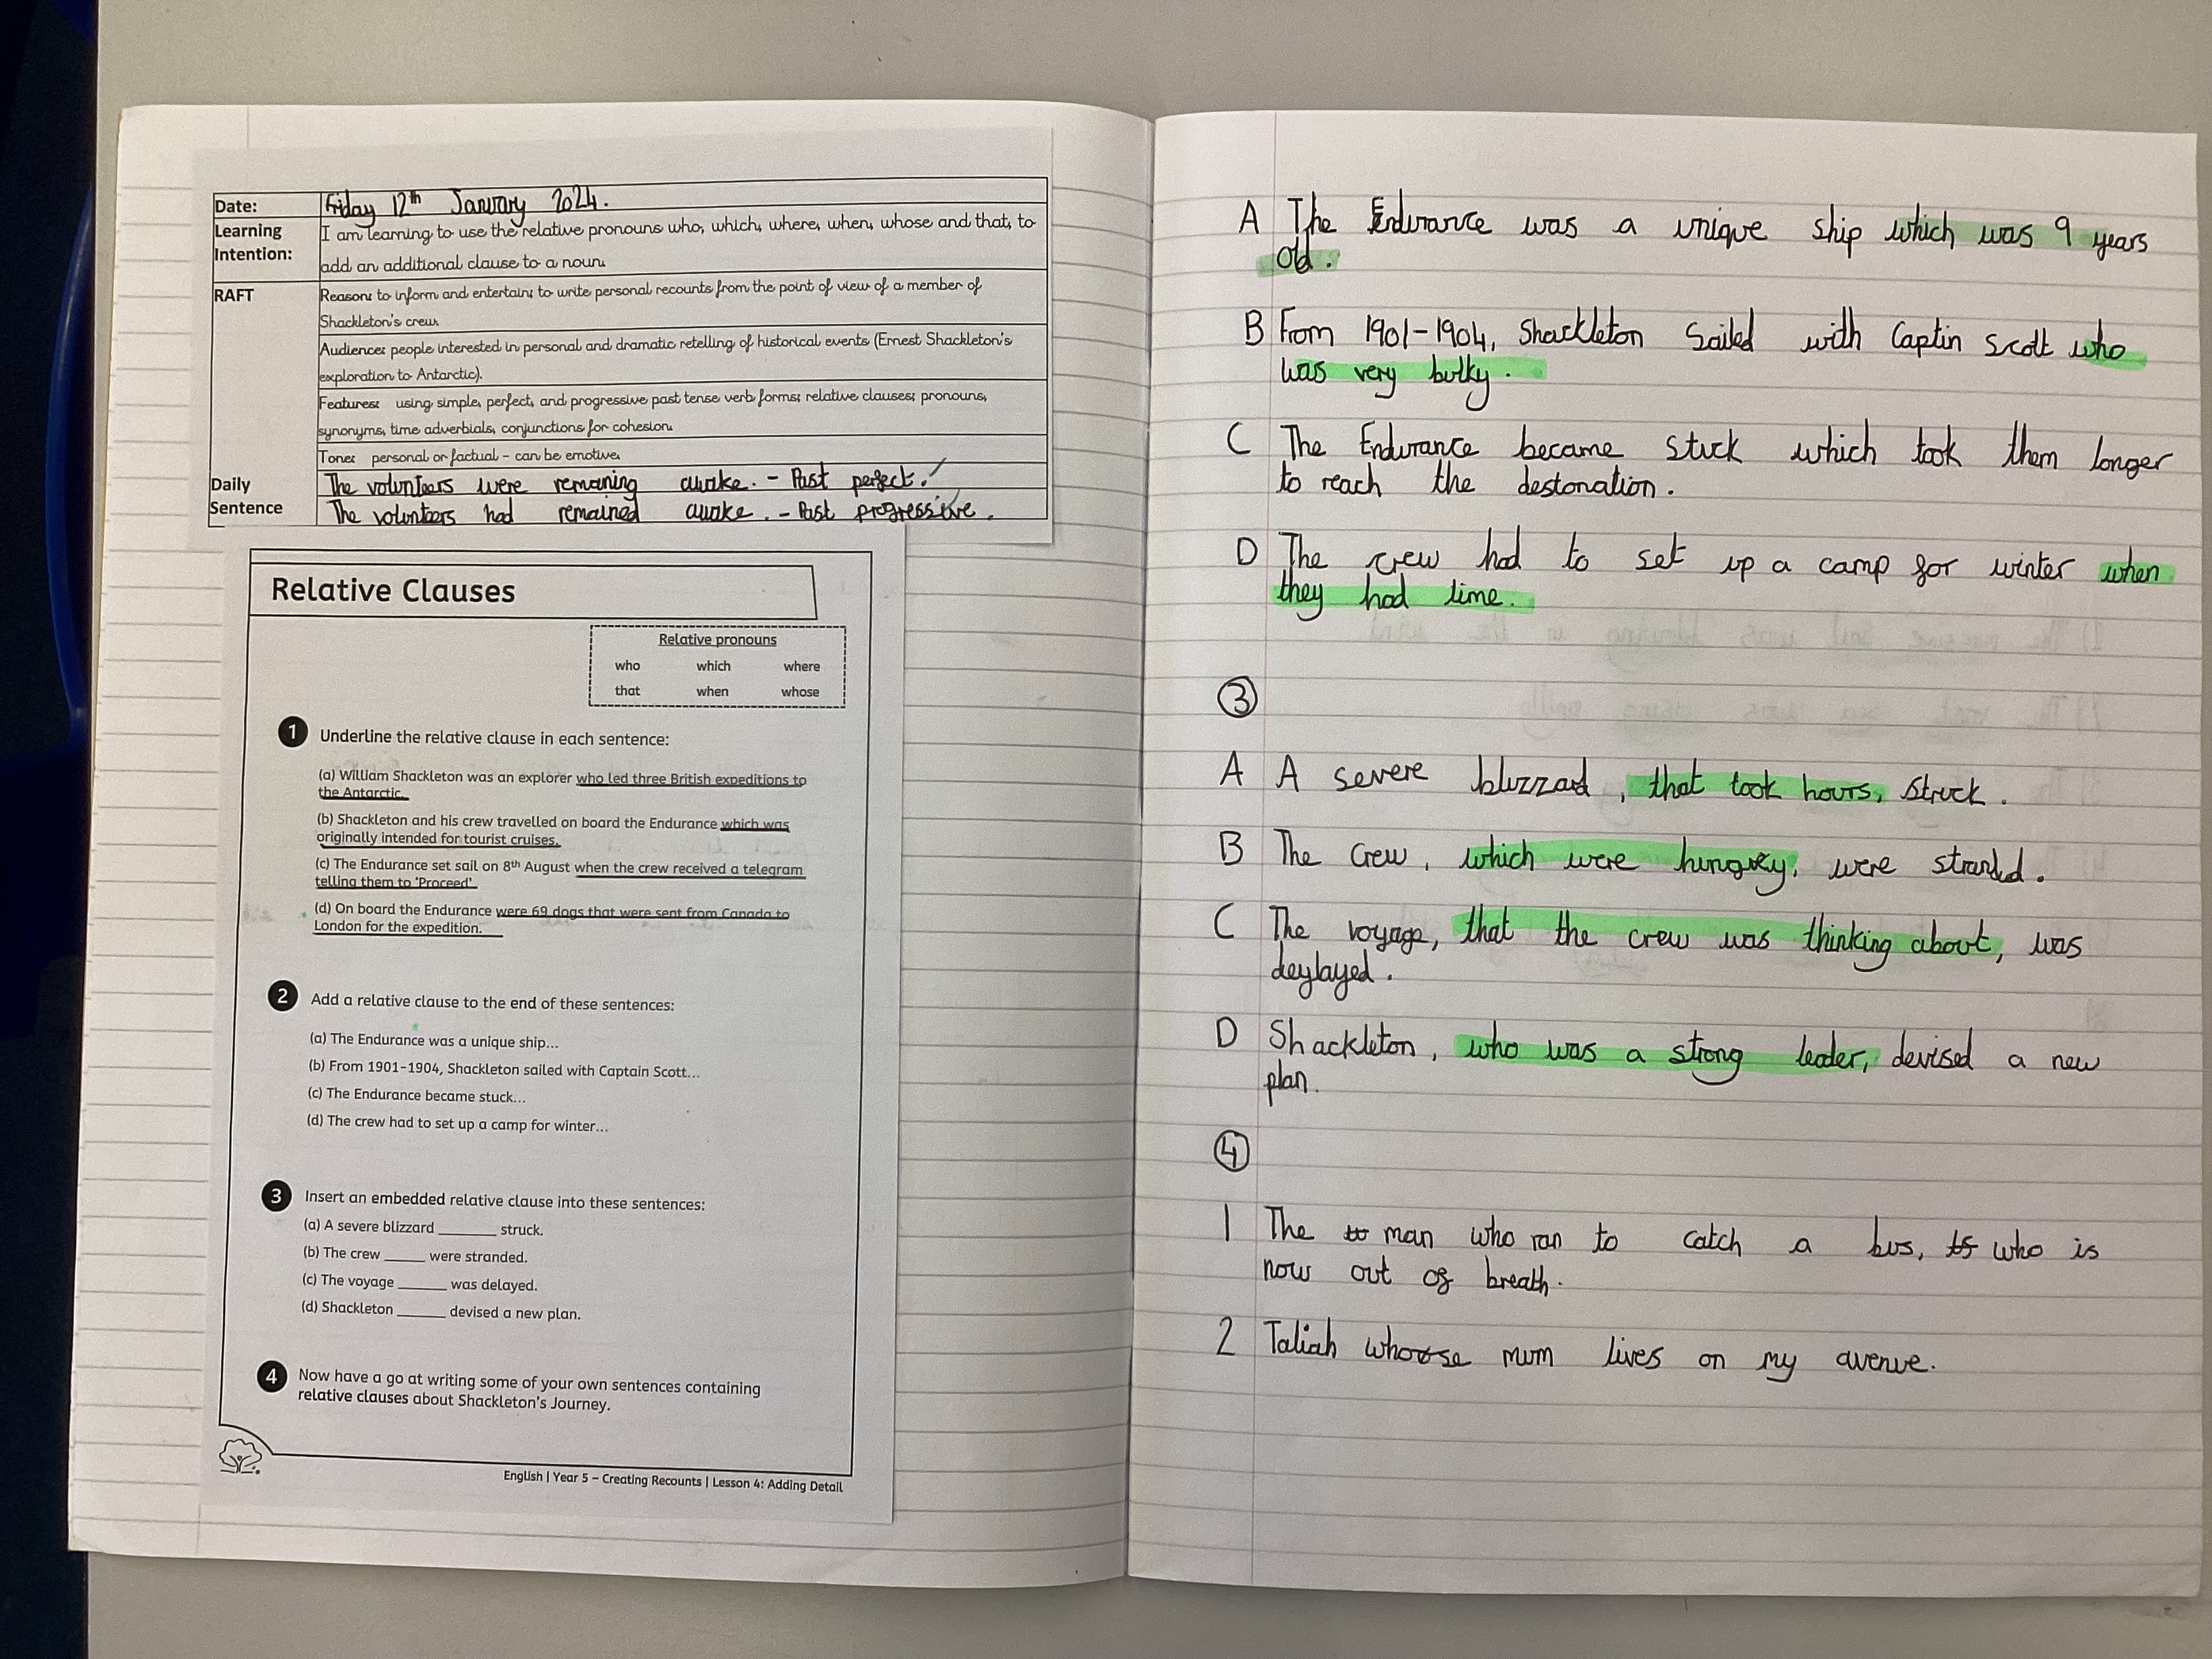 Date: Friday 12th January 2024.
Learning Intention: I am learning to use the relative pronouns who, which, where, when, whose and that, to
add an additional clause to a noun.
RAFT Reason: to inform and entertain; to write personal recounts from the point of view of a member of
Shackleton's crew.
Audience: people interested in personal and dramatic retelling of historical events (Ernest Shackleton's
exploration to Antarctic).
Features: using simple, perfect, and progressive past tense verb forms; relative clauses; pronouns,
synonyms, time adverbials, conjunctions for cohesion.
Tone: personal or factual – can be emotive.
Daily Sentence The volunteers were remaining awake. - Past perfect.
The volunteers had remained awake. - Past progressive.
Relative Clauses
Relative pronouns
who which where
that when whose
1 Underline the relative clause in each sentence:
(a) William Shackleton was an explorer who led three British expeditions to
the Antarctic.
(b) Shackleton and his crew travelled on board the Endurance which was
originally intended for tourist cruises.
(c) The Endurance set sail on 8th August when the crew received a telegram
telling them to 'Proceed'.
(d) On board the Endurance were 69 dogs that were sent from Canada to
London for the expedition.
2 Add a relative clause to the end of these sentences:
(a) The Endurance was a unique ship...
(b) From 1901-1904, Shackleton sailed with Captain Scott...
(c) The Endurance became stuck...
(d) The crew had to set up a camp for winter...
3 Insert an embedded relative clause into these sentences:
(a) A severe blizzard ______ struck.
(b) The crew _____ were stranded.
(c) The voyage ______ was delayed.
(d) Shackleton ______ devised a new plan.
4 Now have a go at writing some of your own sentences containing
relative clauses about Shackleton's Journey.
English | Year 5 – Creating Recounts | Lesson 4: Adding Detail
A The Endurance was a unique ship which was 9 years
old.
B From 1901-1904, Shackleton Sailed with Captin Scott who
was very bulky.
C The Endurance became stuck which took them longer
to reach the destonation.
D The crew had to set up a camp for winter when
they had time.
3
A A severe bluzzard, that took hours, struck.
B The Crew, which were hungrey, were stranded.
C The voyage, that the crew was thinking about, was
deylayed.
D Shackleton, who was a strong leader, devised a new
plan.
4
1 The man who ran to catch a bus, who is
now out of breath.
2 Taliah whoose mum lives on my avenue.